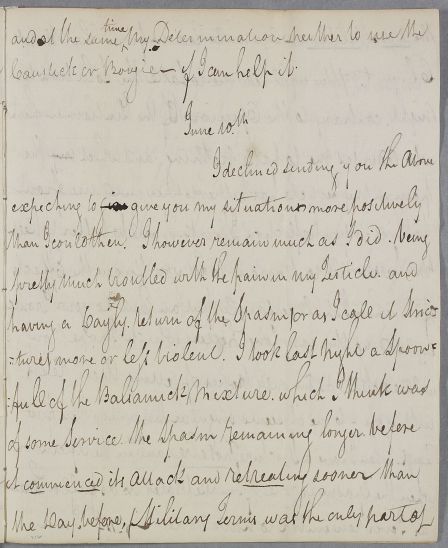 and at the same time my Determination neither to use the
Caustick or Bougie — if I can help it.
June 10th
I declined sending you the above
expecting to give you my situation more positively
than I could then. I however remain much as I did. being
pretty much troubled with the pain in my Testicle and
having a Dayly return of the Spasm or as I call it Stric=
=ture more or less violent. I took last Night a Spoon=
=full of the Balsamick Mixture. which I think was
of some Service. the Spasm Remaining longer before
it commenced its attack and retreating sooner than
the Day before, Military Terms was the only part of